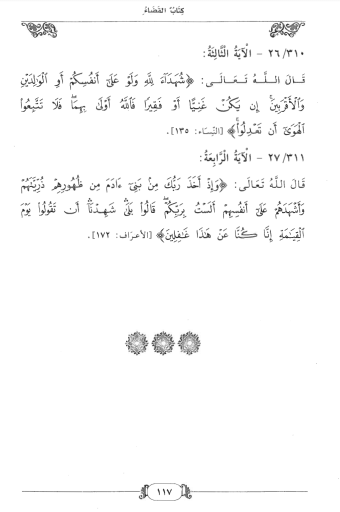 كِتَابُ القَضَاءُ
٢٦/٣١٠ - الْآيَةُ الثَّالِثَةُ:
قَالَ اللَّهُ تَعَالَى: ﴿شُهَدَاءَ لِلَّهِ وَلَوْ عَلَىٰ أَنفُسِكُمْ أَوِ الْوَالِدَيْنِ
وَالْأَقْرَبِينَ إِن يَكُنْ غَنِيًّا أَوْ فَقِيرًا فَاللَّهُ أَوْلَىٰ بِهِمَا فَلَا تَتَّبِعُوا
الْهَوَىٰ أَن تَعْدِلُوا﴾ [النِّسَاء: ١٣٥].
٢٧/٣١١ - الْآيَةُ الرَّابِعَةُ:
قَالَ اللَّهُ تَعَالَى: ﴿وَإِذْ أَخَذَ رَبُّكَ مِنْ بَنِي ءَادَمَ مِن ظُهُورِهِمْ ذُرِّيَّتَهُمْ
وَأَشْهَدَهُمْ عَلَىٰ أَنفُسِهِمْ أَلَسْتُ بِرَبِّكُمْ قَالُوا بَلَىٰ شَهِدْنَا أَن تَقُولُوا يَوْمَ
الْقِيَامَةِ إِنَّا كُنَّا عَنْ هَذَا غَافِلِينَ﴾ [الأعرَاف: ١٧٢].
١١٧